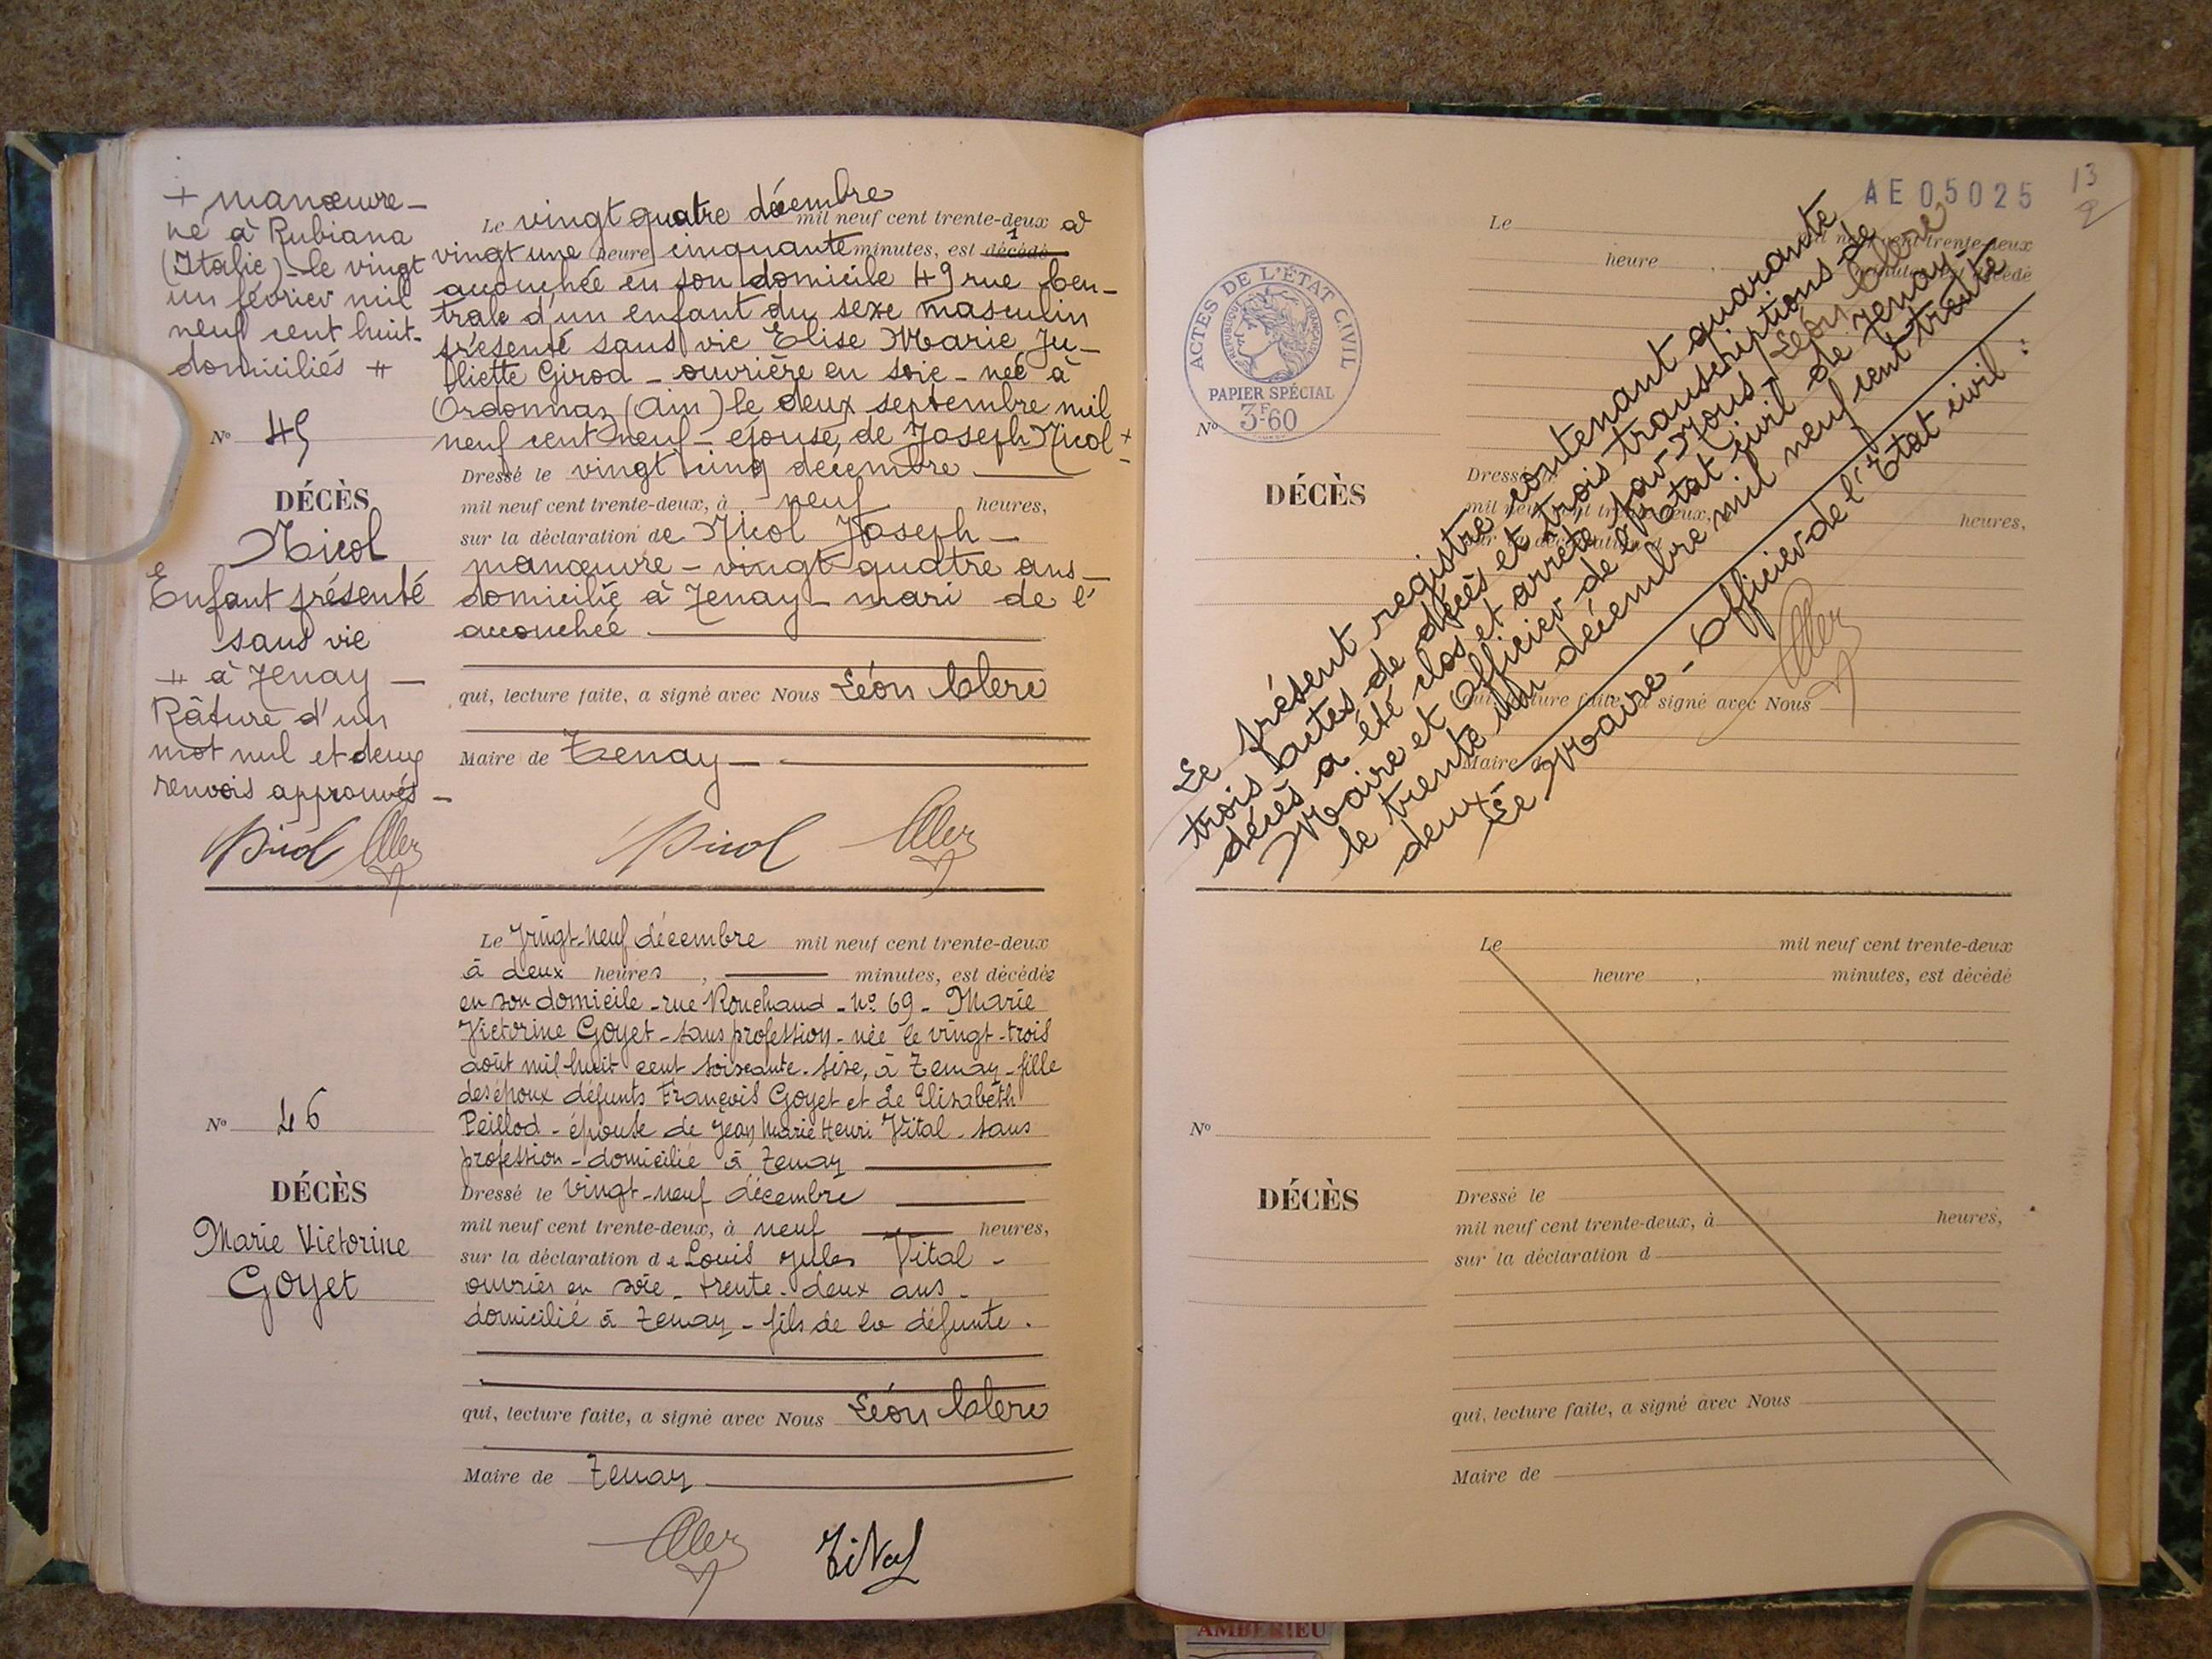 + manœuvre –
né à Rubiana
(Italie) – le vingt
un février mil
neuf cent huit –
domiciliés #
Nº 45
DÉCÈS
Nicol
Enfant présenté
sans vie
# à Tenay –
Râture d'un
mot nul et deux
renvois approuvés –
Nicol
Le vingt quatre décembre mil neuf cent trente-deux à
vingt une heure cinquante minutes, est décédé
accouchée en son domicile 49 rue Cen-
trale d'un enfant du sexe masculin
présenté sans vie Elise Marie Ju-
liette Girod – ouvrière en soie – née à
Ordonnaz (Ain) le deux septembre mil
neuf cent neuf – épouse de Joseph Nicol +
Dressé le vingt cinq décembre
mil neuf cent trente-deux, à neuf heures,
sur la déclaration de Nicol Joseph –
manœuvre – vingt quatre ans –
domicilié à Tenay – mari de l'
accouchée
qui, lecture faite, a signé avec Nous Léon Clerc
Maire de Tenay –
Nicol
Nº 46
DÉCÈS
Marie Victorine
Goyet
Le Vingt-neuf décembre mil neuf cent trente-deux
à deux heures, minutes, est décédée
en son domicile – rue Rouchaud – Nº 69 – Marie
Victorine Goyet – sans profession – née le vingt-trois
août mil huit cent soixante-sise, à Tenay – fille
des époux défunts François Goyet et de Elisabeth
Peillod – épouse de Jean Marie Henri Vital – sans
profession – domicilié à Tenay
Dressé le Vingt-neuf décembre
mil neuf cent trente-deux, à neuf heures,
sur la déclaration de Louis Jules Vital –
ouvrier en soie – trente-deux ans –
domicilié à Tenay – fils de la défunte .
qui, lecture faite, a signé avec Nous Léon Clerc
Maire de Tenay
Vital
AE 05025
13
2
ACTES DE L'ÉTAT CIVIL
RÉPUBLIQUE FRANÇAISE
PAPIER SPÉCIAL
3F-60
Le mil neuf cent trente-deux
heure , minutes, est décédé
Nº
DÉCÈS
Dressé le
mil neuf cent trente-deux, heures,
sur la déclaration d
qui, lecture faite, a signé avec Nous
Maire de
Le présent registre contenant quarante
trois actes de décès et trois transcriptions de
décès a été clos et arrêté par Nous, Léon Clerc
Maire et Officier de l'Etat civil de Tenay –
le trente un décembre mil neuf cent trente
deux –
Le Maire – Officier de l'Etat civil :
Le mil neuf cent trente-deux
heure , minutes, est décédé
Nº
DÉCÈS
Dressé le
mil neuf cent trente-deux, à heures,
sur la déclaration d
qui, lecture faite, a signé avec Nous
Maire de
AMBERIEU